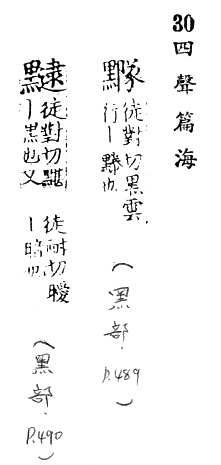 30 四聲篇海
徒對切黑雲
行丨黟也
(黑部.P.489)
徒對切黮
丨黑也又
徒耐切曖
丨暗也
(黑部.P.490)